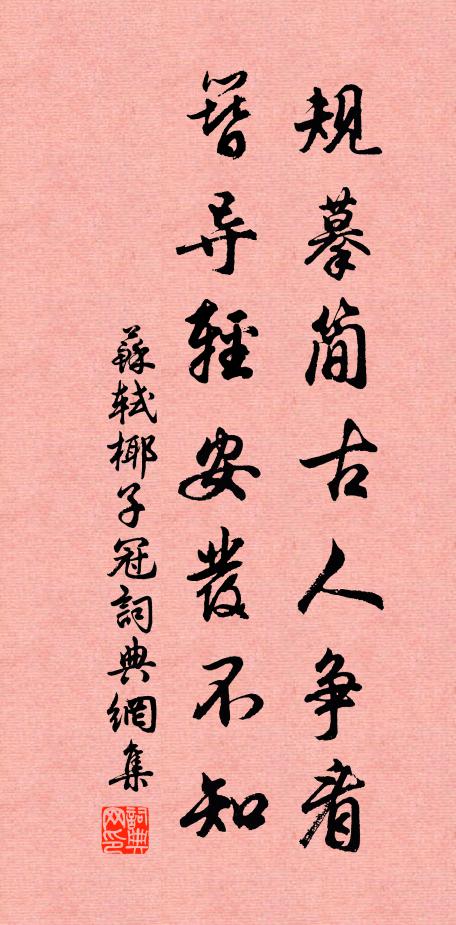 規摹簡古人争看
簪导輕安髮不知
蘇軾椰子冠詞典網集
詞典网印